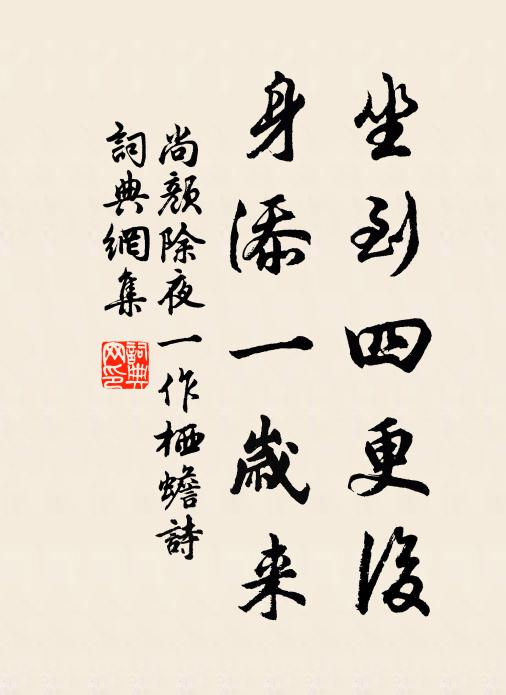 坐到四更後
身添一歲来
尚顏除夜一作栖蟾詩
詞典網集
詞典网印